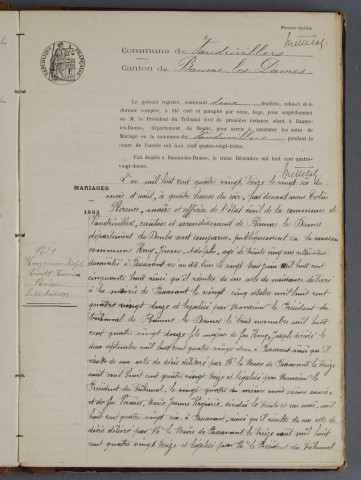 Premier feuillet.
Commune de Vaudrivillers
Canton de Baume les Dames
Le présent registre, contenant deux feuillets, celui-ci et le
dernier compris, a été coté et paraphé par nous, Juge, pour empêchement
de M. le Président du Tribunal civil de première instance séant à Baume-
les-Dames, département du Doubs, pour servir à constater les actes de
Mariage en la commune de Vaudrivillers pendant le
cours de l'année mil huit cent quatre-vingt-treize.
Fait double à Baume-les-Dames, le trente Décembre mil huit cent quatre-
vingt-douze.
MARIAGES
1893
L'an mil huit cent quatre vingt treize le vingt six du
mois d'avril, à quatre heures du soir, par devant nous
Florence, maire et officier de l'état civil de la commune de
Vaudrivillers, canton et arrondissement de Baume les Dames
département du Doubs sont comparus publiquement en la maison
commune Adolphe, âgé de trente cinq ans cultivateur
domicilié à Passavant né au dit lieu le vingt huit juin mil huit cent
cinquante huit ainsi qu'il résulte de son acte de naissance délivré
à la mairie de Passavant le vingt cinq octobre mil huit cent
quatre vingt douze et légalisé par Monsieur le Président du
Tribunal de Baume les Dames le trois novembre mil huit
cent quatre vingt douze fils majeur de feu Joseph décédé le
deux septembre mil huit cent quatre vingt deux à Passavant ainsi qu'il
résulte de son acte de décès délivré par Mr le Maire de Passavant le treize
avril mil huit cent quatre vingt treize et légalisé par Monsieur le
Président du Tribunal, le vingt quatre du même mois même année,
et de feu Marie Jeanne Virginie, décédée le trente et un mai, mil
huit cent quatre vingt six à Passavant, ainsi qu'il résulte de son acte de
décès délivré par Mr le Maire de Passavant le treize avril mil huit
cent quatre vingt treize et légalisé par Mr le Président du Tribunal